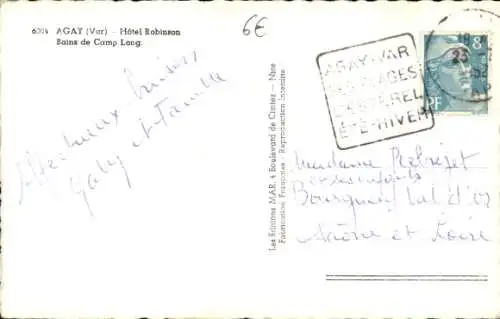 6004 AGAY (Var) - Hôtel Robinson
Bains de Camp Long.
6€
AGAY-VAR
PLAGES
ESTEREL
ETE-HIVER
8
RF
Affectueux baisers
Gaby et famille
Les Editions MAR, 4 Boulevard de Cimiez - Nice
Fabrication Française - Reproduction Interdite
Madame
et ses enfants
Bourgneuf Val d'or
Saône et Loire